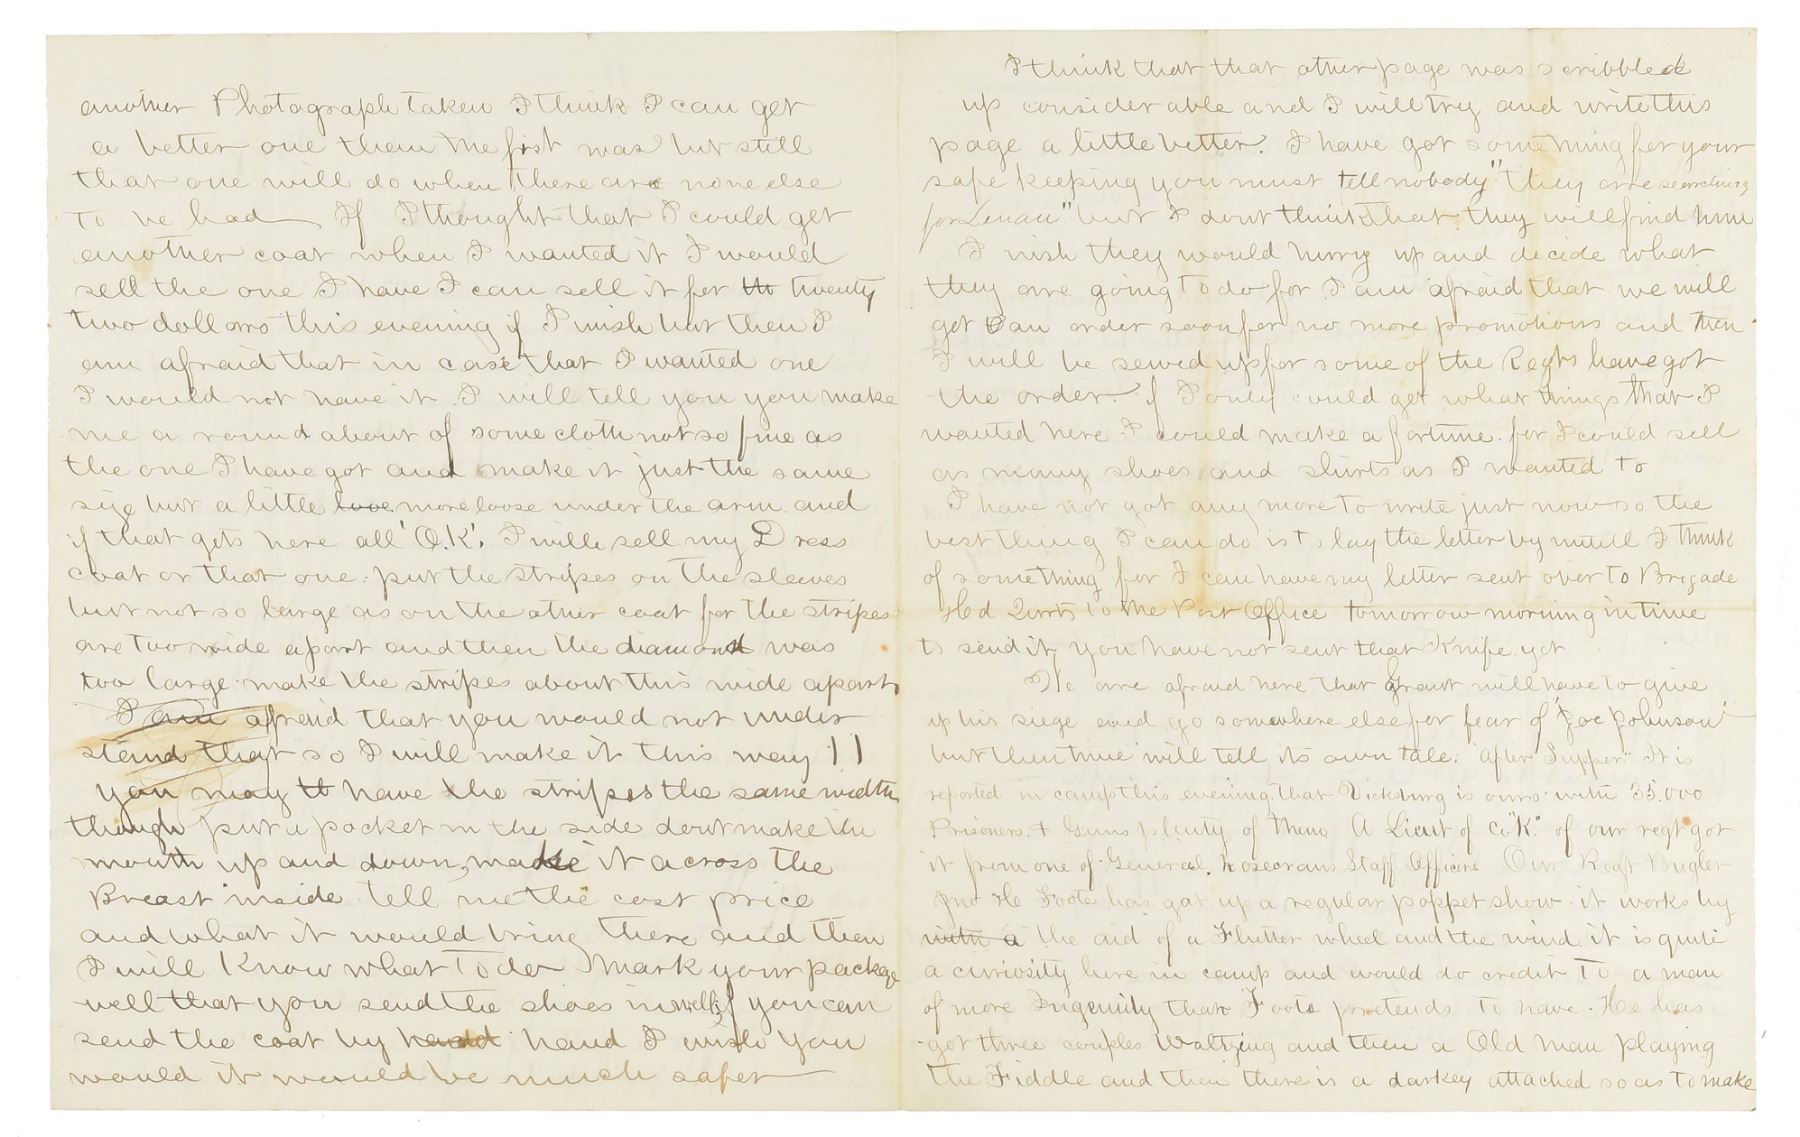 another Photograph taken I think I can get
a better one then the first was but still
that one will do when there are none else
to be had If I thought that I could get
another coat when I wanted it I would
sell the one I have I can sell it for to twenty
two dollars this evening if I wish but then I
am afraid that in case that I wanted one
I would not have it I will tell you you make
me a round about of some cloth not so fine as
the one I have got and make it just the same
size but a little more loose under the arm and
if that gets here all 'O.K.' I will sell my Dress
coat or that one. put the stripes on the sleeves
but not so large as on the other coat for the stripes
are too wide apart and then the diamond was
too large make the stripes about this wide apart
I am afraid that you would not under
stand that so I will make it this way | |
you may tt have the stripes the same width
though put a pocket in the side dont make the
mouth up and down, make it across the
Breast inside tell me the cost price
and what it would bring there and then
I will Know what To do Mark your package
well that you send the shoes in well, if you can
send the coat by hand I wish you
would it would be much safer
I think that that other page was scribbled
up considerable and I will try and write this
page a little better. I have got something for your
safe keeping you must tell nobody "they are searching
for" but I dont think that they will find him
I wish they would hurry up and decide what
they are going To do for I am afraid that we will
get an order soon for no more promotions and then
I will be sewed up for some of the Regts have got
the order. if I only could get what things that I
wanted here I could make a fortune for I could sell
as many shoes and shirts as I wanted to
I have not got any more to write just now so the
best thing I can do is to lay the letter by untill I think
of something for I can have my letter sent over to Brigade
Hd Qurts to the Post Office tomorrow morning in time
to send it, you have not sent that Knife yet
We are afraid here that Grant will have to give
up his siege and go somewhere else for fear of 'Joe Johnson'
but then time will tell its own tale. "After Supper." It is
reported in camp this evening that Vicksburg is ours with 35.000
Prisoners, + Guns plenty of them A Lieut of Co "K." of our regt got
it from one of General. Rosecrans Staff Officers. Our Regt Bugler
Jno H Foote has got up a regular poppet show. it works by
with a the aid of a Flutter wheel and the wind. it is quite
a curiosity here in camp and would do credit To a man
of more Ingenuity than Foote pretends to have. He has
got three couples Waltzing and then a Old Man playing
the Fiddle and then there is a darkey attached so as to make